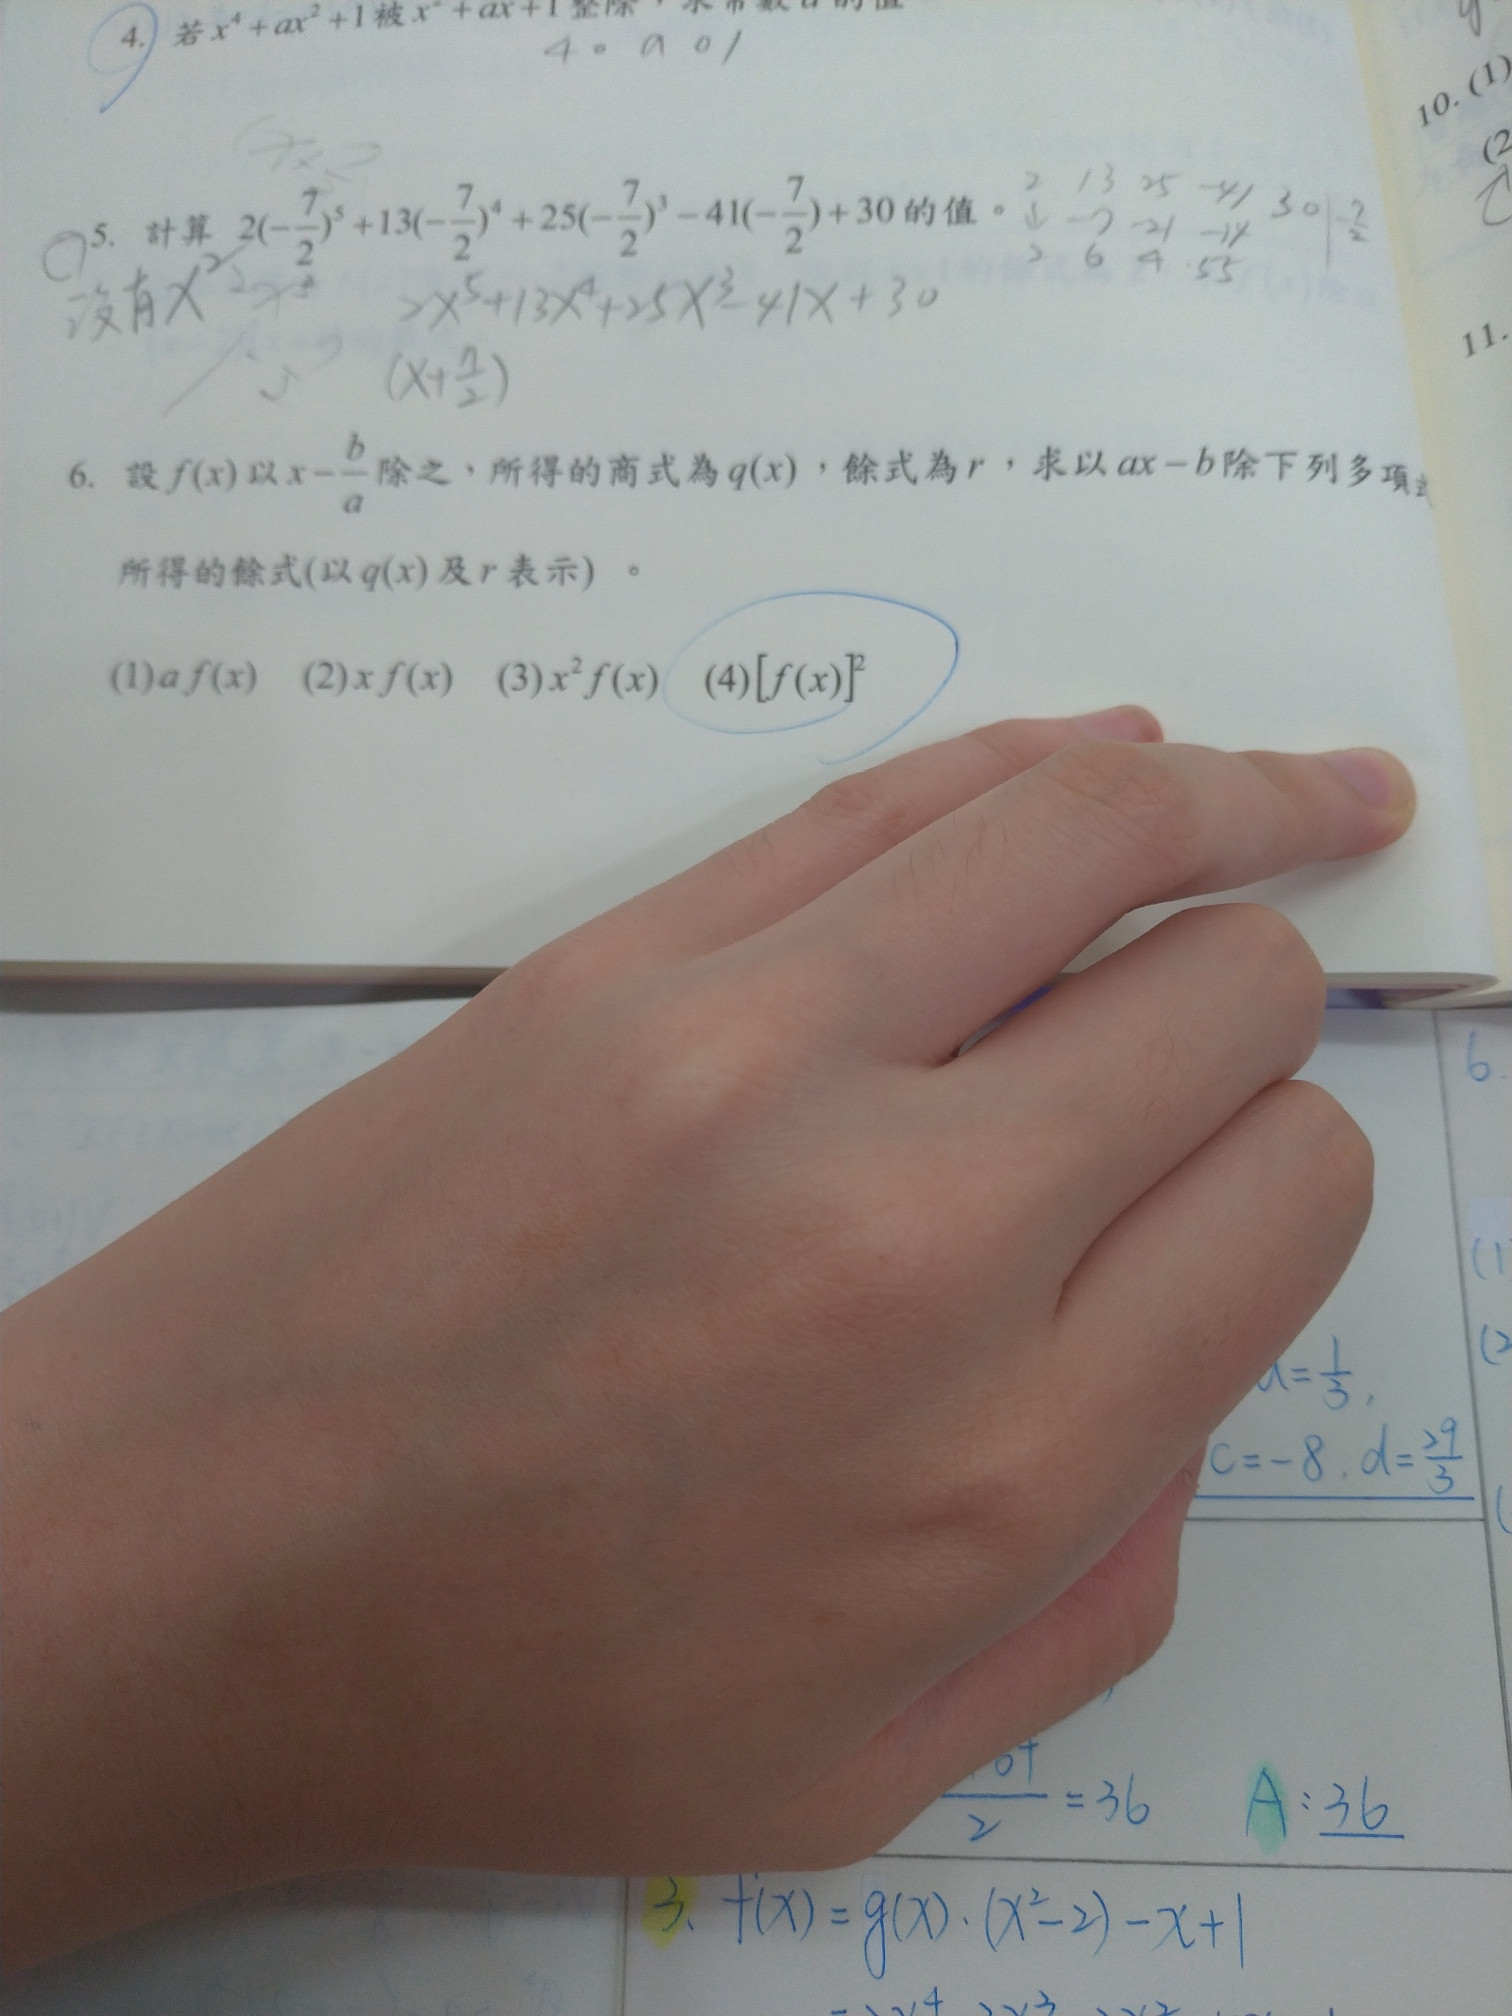 4. 若 x⁴ + ax² + 1 被 x² + ax + 1 整除，求常數 a 的值
4 0 a 0 1
5. 計算 2(-7/2)⁵ + 13(-7/2)⁴ + 25(-7/2)³ - 41(-7/2) + 30 的值。
2 13 25 -41 30 | -7/2
↓ -7 -21 -14
2 6 4 -55
沒有x²
2x⁵+13x⁴+25x³-41x+30
(x+7/2)
6. 設 f(x) 以 x - b/a 除之，所得的商式為 q(x)，餘式為 r，求以 ax - b 除下列多項
所得的餘式(以 q(x) 及 r 表示)。
(1) a f(x) (2) x f(x) (3) x² f(x) (4) [f(x)]²
10. (1)
(2
11.
6.
(1
(2
a=1/3,
c=-8, d=29/3
2 =36 A:36
3. f(x)=g(x)·(x²-2)-x+1